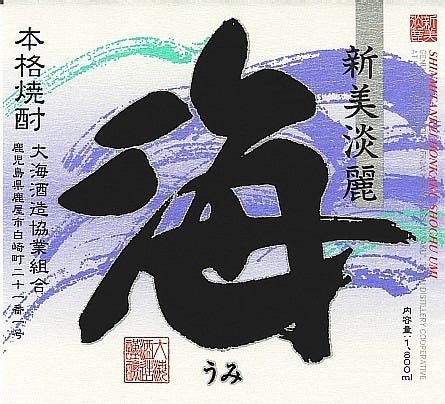 新美淡麗
海
うみ
本格焼酎
大海酒造協業組合
鹿児島県鹿屋市白崎町二十一番一号
内容量・1,800ml
SHINBITANREI HONKAKU SHOCHU UMI
DISTILLERY COOPERATIVE
新美
淡麗